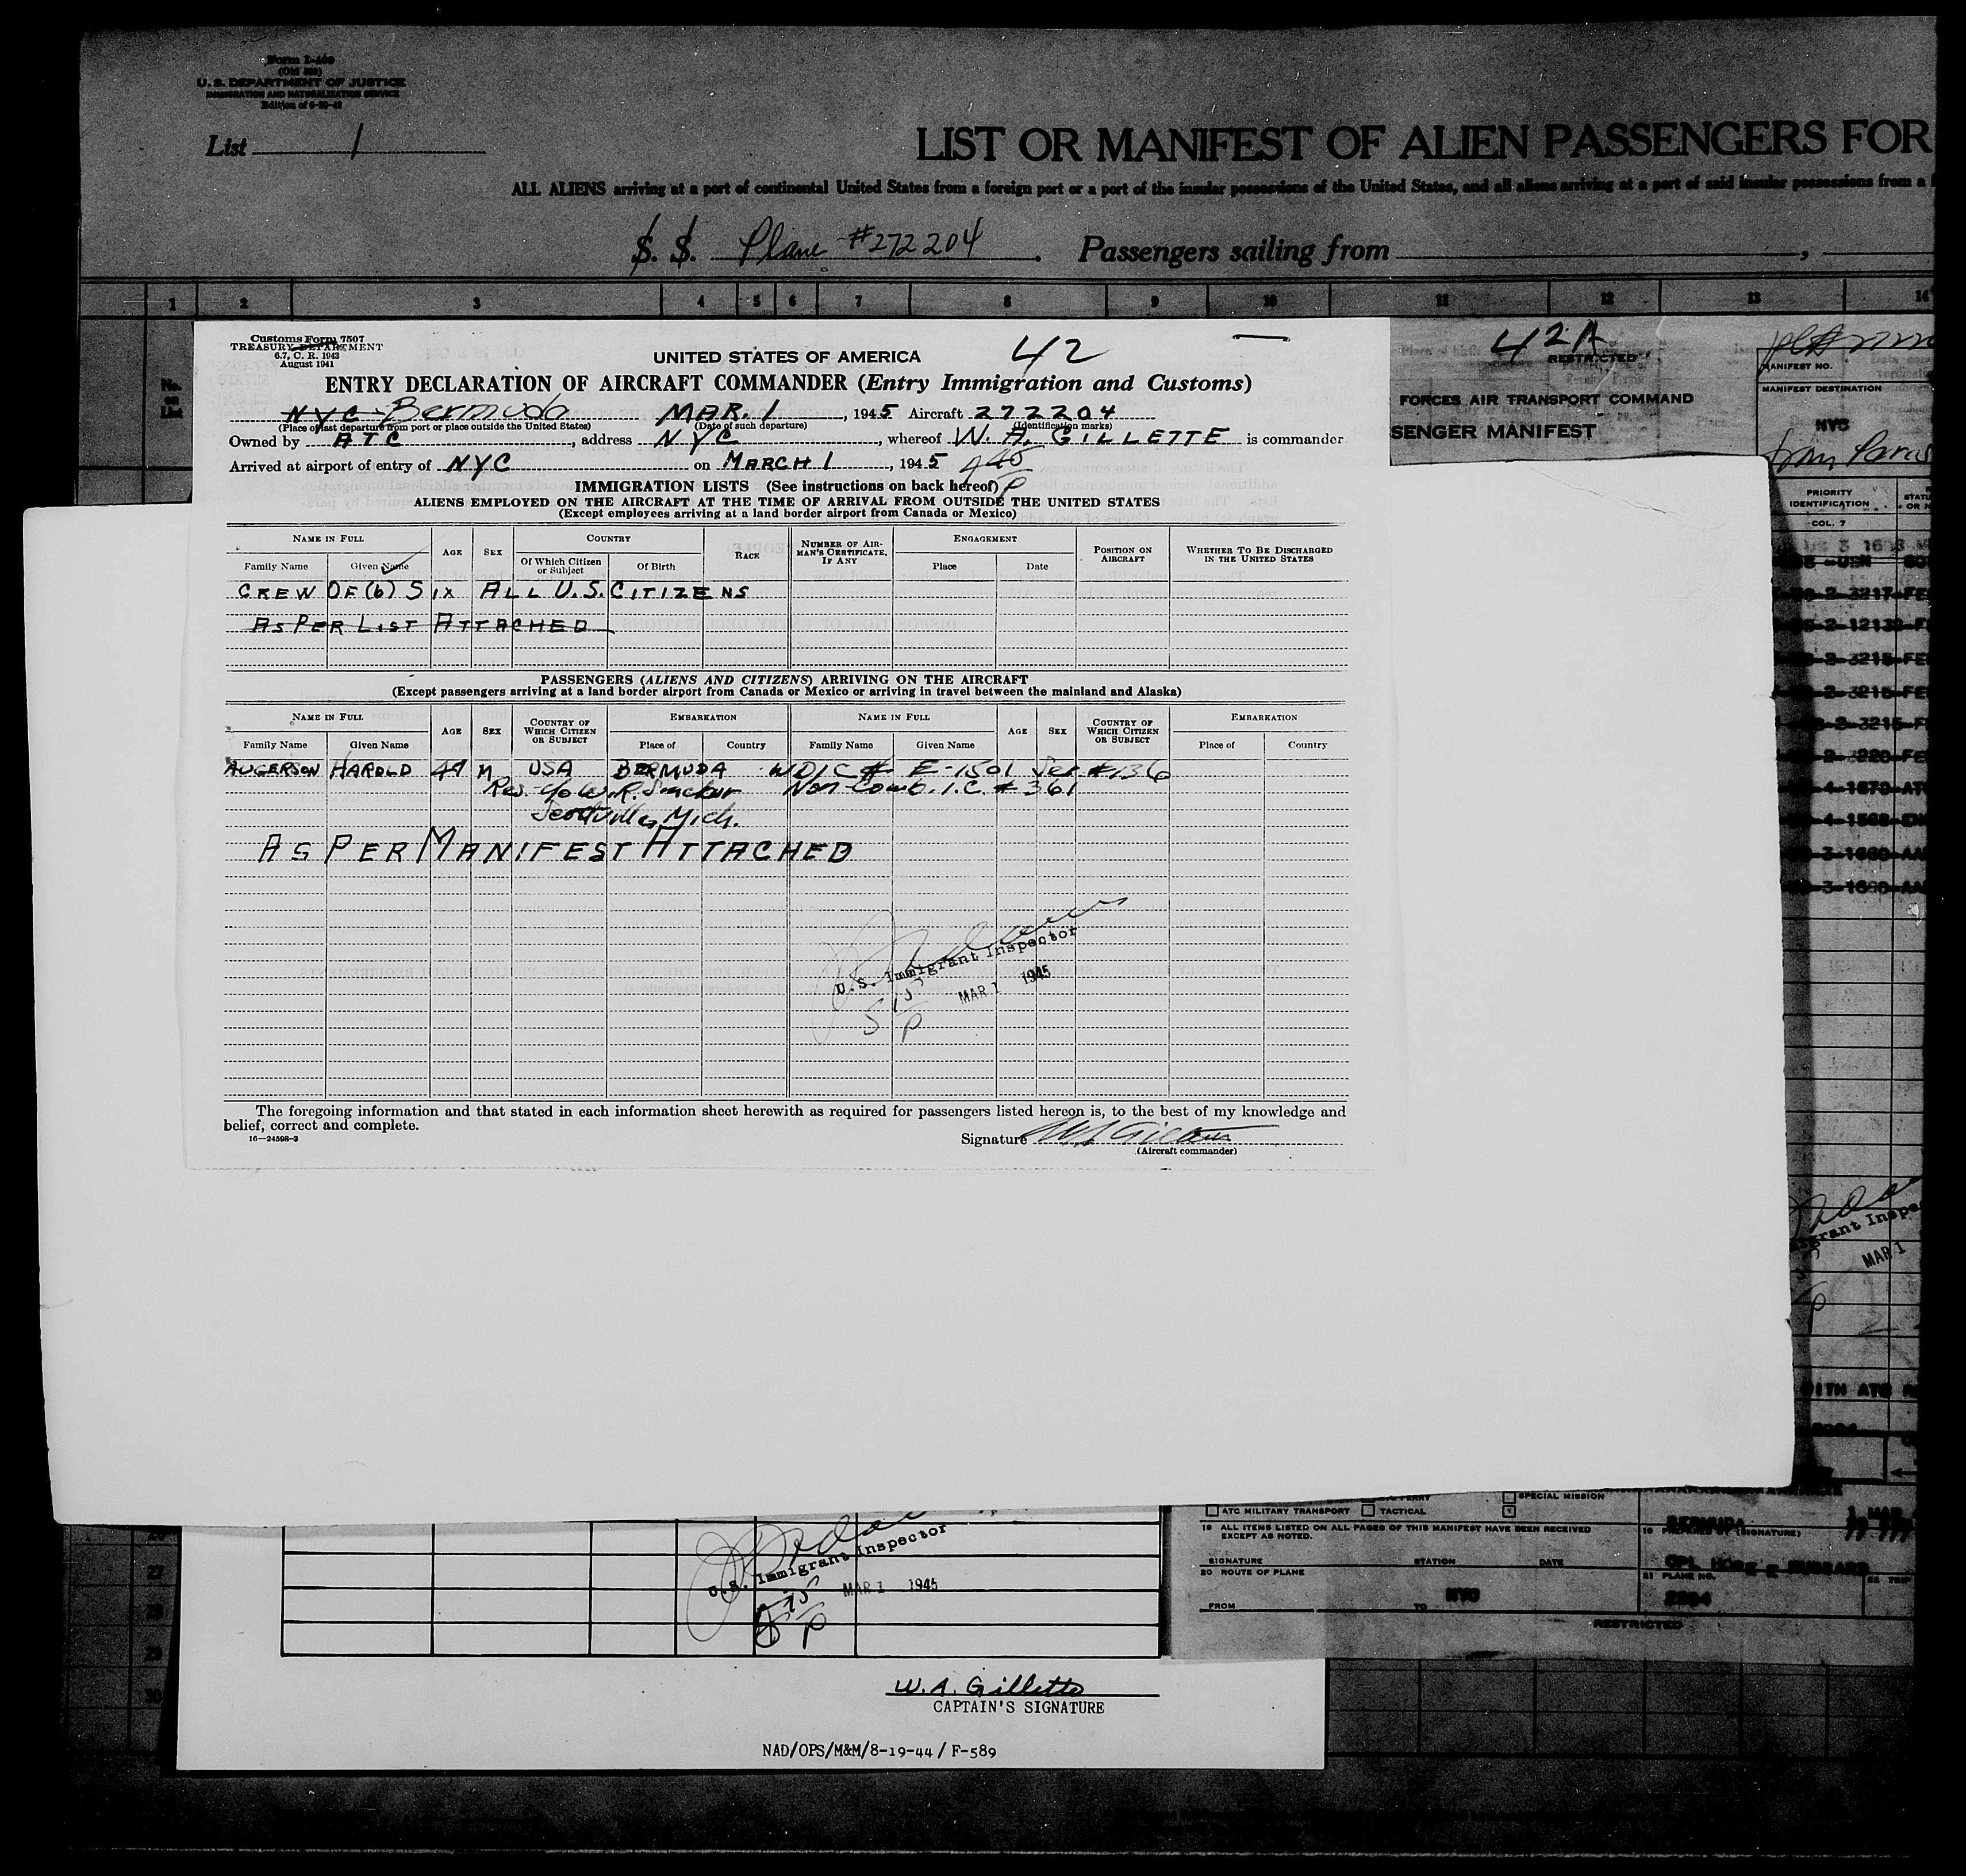 Form I-466
(Old 500)
U. S. DEPARTMENT OF JUSTICE
IMMIGRATION AND NATURALIZATION SERVICE
List 1
LIST OR MANIFEST OF ALIEN PASSENGERS FOR
ALL ALIENS arriving at a port of continental United States from a foreign port or a port of the insular possessions of the United States, and all aliens arriving at a port of said insular possessions from a
S. S. Plane #272204. Passengers sailing from
1 2 3 4 5 6 7 8 9 10 11 12 13 14
No. on List
Customs Form 7507
TREASURY DEPARTMENT
6.7, C. R. 1943
August 1941
UNITED STATES OF AMERICA
42
ENTRY DECLARATION OF AIRCRAFT COMMANDER (Entry Immigration and Customs)
NYC - Bermuda MAR. 1, 1945 Aircraft 272204
(Place of last departure from port or place outside the United States) (Date of such departure) (Identification marks)
Owned by ATC, address NYC, whereof W. A. GILLETTE is commander
Arrived at airport of entry of NYC on MARCH 1, 1945
IMMIGRATION LISTS (See instructions on back hereof)
ALIENS EMPLOYED ON THE AIRCRAFT AT THE TIME OF ARRIVAL FROM OUTSIDE THE UNITED STATES
(Except employees arriving at a land border airport from Canada or Mexico)
NAME IN FULL AGE SEX COUNTRY RACE NUMBER OF AIRMAN'S CERTIFICATE, IF ANY ENGAGEMENT POSITION ON AIRCRAFT WHETHER TO BE DISCHARGED IN THE UNITED STATES
Family Name Given Name Of Which Citizen or Subject Of Birth Place Date
CREW OF (6) SIX ALL U.S. CITIZENS
AS PER LIST ATTACHED
PASSENGERS (ALIENS AND CITIZENS) ARRIVING ON THE AIRCRAFT
(Except passengers arriving at a land border airport from Canada or Mexico or arriving in travel between the mainland and Alaska)
NAME IN FULL AGE SEX COUNTRY OF WHICH CITIZEN OR SUBJECT EMBARKATION NAME IN FULL AGE SEX COUNTRY OF WHICH CITIZEN OR SUBJECT EMBARKATION
Family Name Given Name Place of Country Family Name Given Name Place of Country
AUGERSON HAROLD 49 M USA BERMUDA WDIC # E-1501 Ser. #136
Res. % W. R. Non Comb. I.C. # 361
Scottville, Mich.
AS PER MANIFEST ATTACHED
U.S. Immigrant Inspector
MAR 1 1945
515
P
The foregoing information and that stated in each information sheet herewith as required for passengers listed hereon is, to the best of my knowledge and
belief, correct and complete.
16—24598-3
Signature W A Gillette
(Aircraft commander)
42A
RESTRICTED
MANIFEST NO.
MANIFEST DESTINATION
FORCES AIR TRANSPORT COMMAND
NYC
SENGER MANIFEST
PRIORITY IDENTIFICATION
COL. 7
grant Inspe
MAR 1
WITH ATC
ATC MILITARY TRANSPORT TACTICAL SPECIAL MISSION
18 ALL ITEMS LISTED ON ALL PAGES OF THIS MANIFEST HAVE BEEN RECEIVED
EXCEPT AS NOTED.
BERMUDA 1 MAR
SIGNATURE STATION DATE
20 ROUTE OF PLANE
21 PLANE NO.
FROM TO NYC
2204
RESTRICTED
27
28
29
30
U.S. Immigrant Inspector
MAR 1 1945
515
P
W. A. Gillette
CAPTAIN'S SIGNATURE
NAD/OPS/M&M/8-19-44/F-589